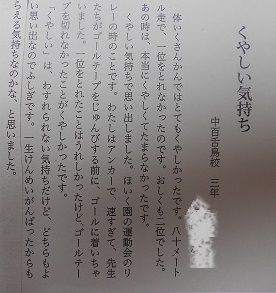 くやしい気持ち
中百舌鳥校　三年
体いくさんかんではとてもくやしかったです。八十メート
ル走で、一位をとれなかったのです。おしくも二位でした。
あの時は、本当にくやしくてたまらなかったです。
くやしい気持ちで思い出しました。ほいく園の運動会のリ
レーの時のことです。わたしはアンカーで、速すぎて、先生
たちがゴールテープをじゅんびする前に、ゴールに着いちゃ
いました。一位をとれたことはうれしかったけど、ゴールテー
プを切れなかったことがくやしかったです。
「くやしい」は、わすれられない気持ちだけど、どちらもよ
い思い出なのでふしぎです。一生けんめいがんばったからも
らえる気持ちなのかな、と思いました。